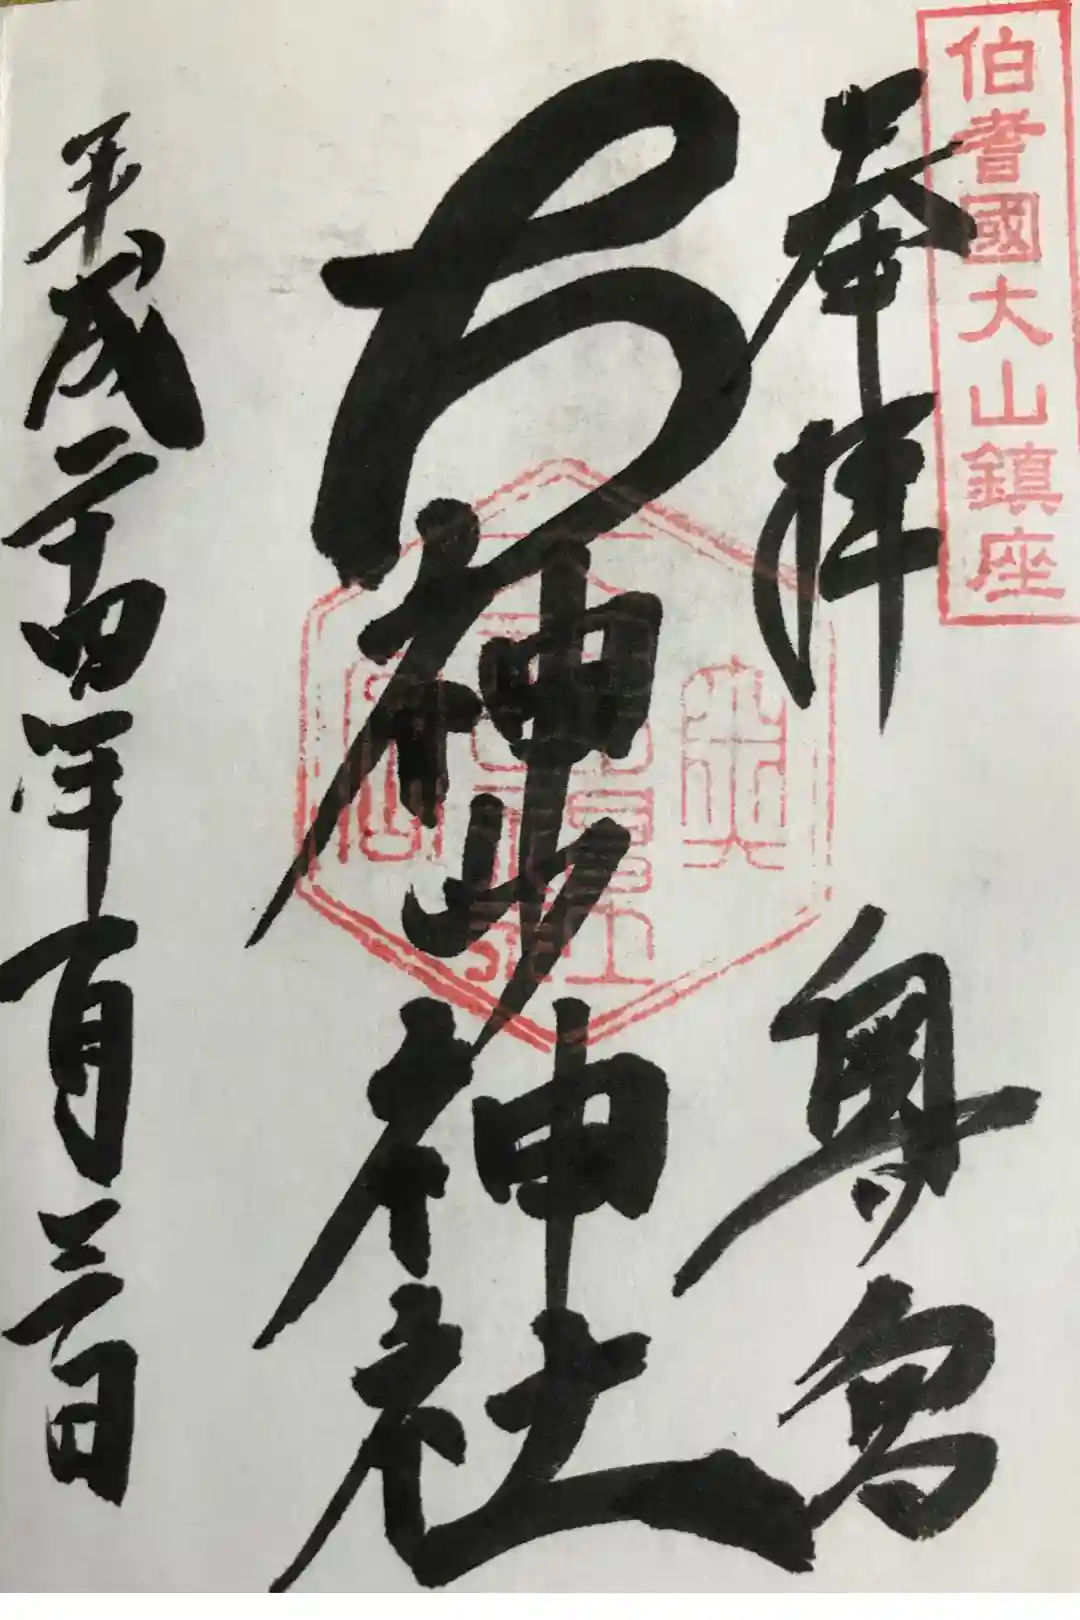 伯耆國大山鎮座
奉拝 奥宮
大神山神社
平成二十四年一月三日